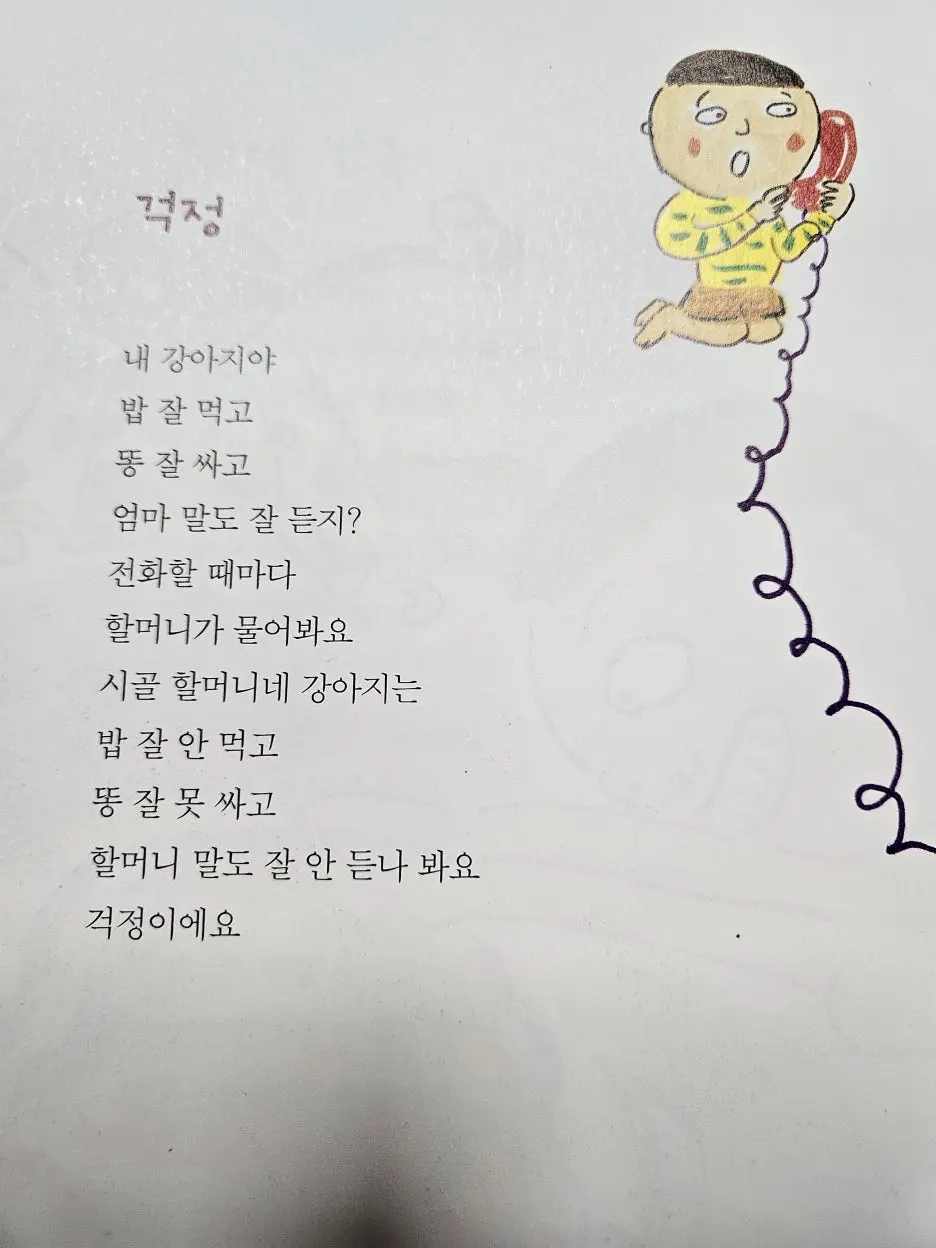 걱정
내 강아지야
밥 잘 먹고
똥 잘 싸고
엄마 말도 잘 듣지?
전화할 때마다
할머니가 물어봐요
시골 할머니네 강아지는
밥 잘 안 먹고
똥 잘 못 싸고
할머니 말도 잘 안 듣나 봐요
걱정이에요